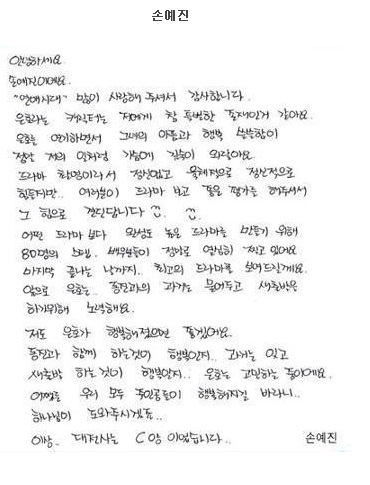 손예진
안녕하세요
손예진이에요.
"연애시대" 많이 사랑해 주셔서 감사합니다.
은호라는 캐릭터는 저에게 참 특별한 존재인거 같아요.
은호를 연기하면서 그녀의 아픔과 행복 쓸쓸함이
정말 저의 일처럼 가슴에 깊숙이 와닿아요.
드라마 촬영이라서 정신없고 육체적으로 정신적으로
힘들지만.. 여러분이 드라마 보고 좋은 평가를 해주셔서
그 힘으로 견딘답니다
어떤 드라마 보다 완성도 높은 드라마를 만들기 위해
80명의 스텝. 배우분들이 정말로 열심히 찍고 있어요
마지막 끝나는 날까지.. 최고의 드라마를 보여드릴게요.
앞으로 은호는.. 동진과의 과거는 묻어두고 새출발을
하기위해 노력해요.
저도 은호가 행복해졌으면 좋겠어요.
동진과 함께 하는것이 행복인지.. 과거는 잊고
새출발 하는것이 행복인지.. 은호는 고민하는 중이에요.
어쨌든 우리 모두 주인공들이 행복해지길 바라니..
하나님이 도와주시겠죠..
이상. 대전사는 C양 이었습니다..
손예진